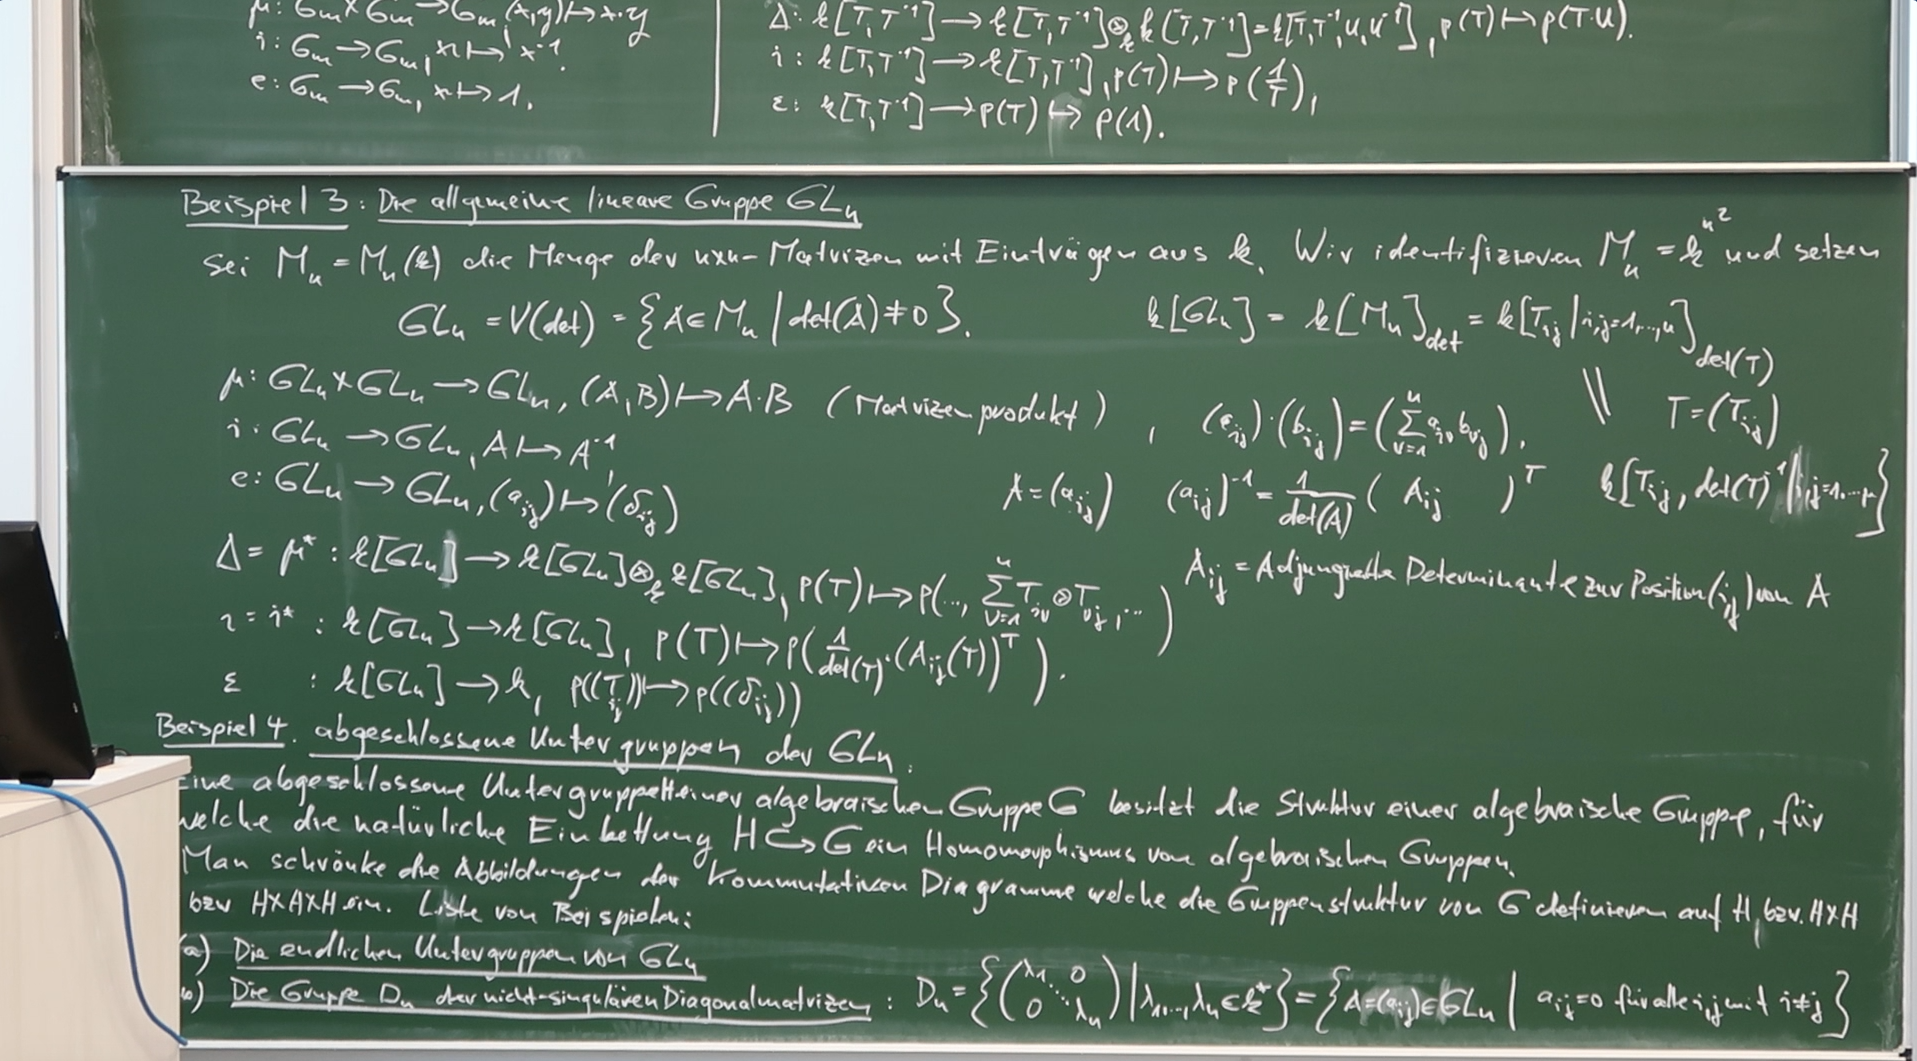 μ: G_m×G_m→G_m, (x,y)↦x·y
i: G_m→G_m, x↦x⁻¹.
e: G_m→G_m, x↦1.
Δ: k[T,T⁻¹]→k[T,T⁻¹]⊗_k k[T,T⁻¹]=k[T,T⁻¹,U,U⁻¹], p(T)↦p(T·U).
i: k[T,T⁻¹]→k[T,T⁻¹], p(T)↦p(1/T),
ε: k[T,T⁻¹]→p(T)↦p(1).
Beispiel 3: Die allgemeine lineare Gruppe GL_n
Sei M_n = M_n(k) die Menge der n×n-Matrizen mit Einträgen aus k. Wir identifizieren M_n = k^{n²} und setzen
GL_n = V(det) = {A∈M_n | det(A)≠0}. k[GL_n] = k[M_n]_{det} = k[T_{ij} | i,j=1,...,n]_{det(T)}
μ: GL_n×GL_n→GL_n, (A,B)↦A·B (Matrizenprodukt), (a_{ij})·(b_{ij})=(∑_{ν=1}^n a_{iν}b_{νj}), || T=(T_{ij})
i: GL_n→GL_n, A↦A⁻¹
e: GL_n→GL_n, (a_{ij})↦(δ_{ij}) A=(a_{ij}) (a_{ij})⁻¹=1/det(A) (A_{ij})^T k[T_{ij}, det(T)⁻¹ | i,j=1,...,n]
Δ=μ*: k[GL_n]→k[GL_n]⊗_k k[GL_n], p(T)↦p(..., ∑_{ν=1}^n T_{iν}⊗T_{νj}, ...) A_{ij} = Adjungierte Determinante zur Position (i,j) von A
ι=i*: k[GL_n]→k[GL_n], p(T)↦p(1/det(T)·(A_{ij}(T))^T).
ε : k[GL_n]→k, p((T_{ij}))↦p((δ_{ij}))
Beispiel 4. abgeschlossene Untergruppen der GL_n.
Eine abgeschlossene Untergruppe H einer algebraischen Gruppe G besitzt die Struktur einer algebraische Gruppe, für
welche die natürliche Einbettung H↪G ein Homomorphismus von algebraischen Gruppen.
Man schränke die Abbildungen der kommutativen Diagramme welche die Gruppenstruktur von G definieren auf H, bzw. H×H
bzw H×H×H ein. Liste von Beispielen:
(a) Die endlichen Untergruppen von GL_n
(b) Die Gruppe D_n der nicht-singulären Diagonalmatrizen: D_n={(λ_1 0 ⋱ 0 λ_n) | λ_1,...,λ_n∈k*}={A=(a_{ij})∈GL_n | a_{ij}=0 für alle i,j mit i≠j}